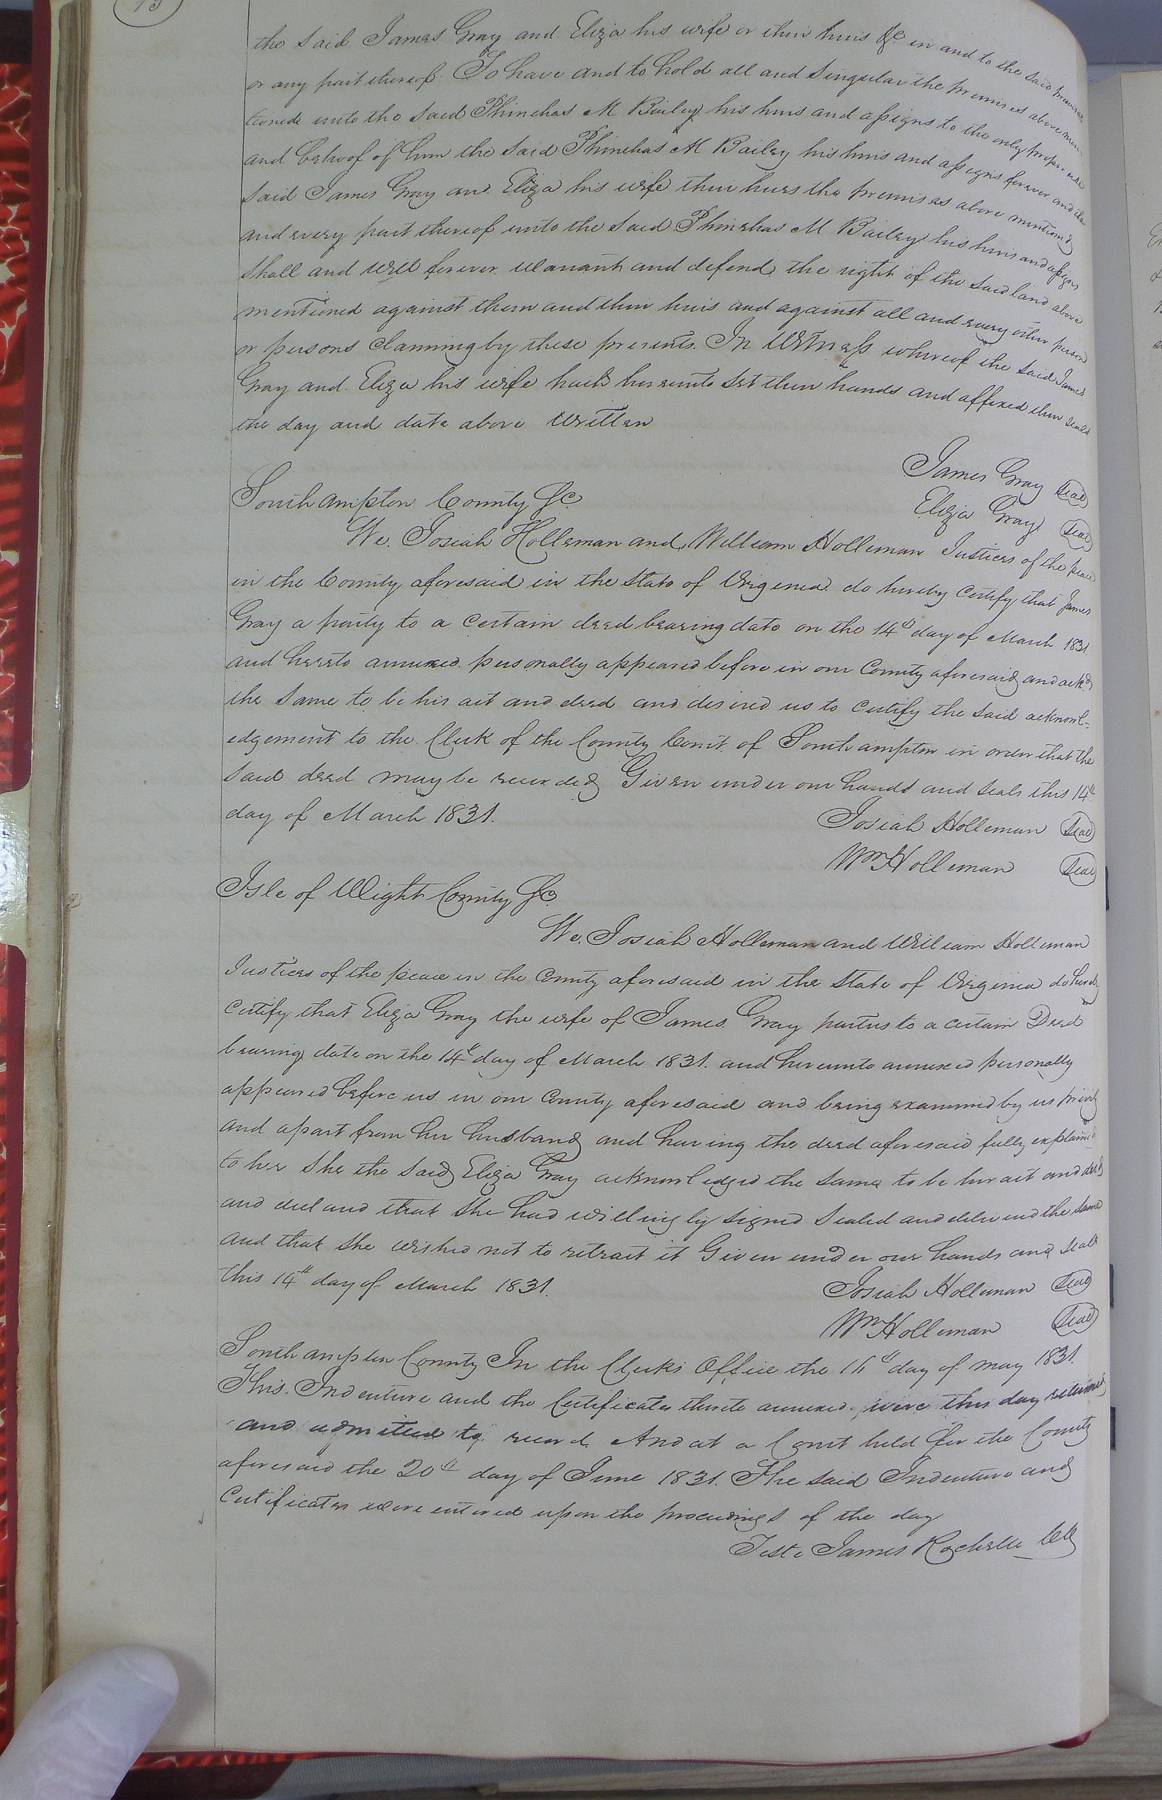 the said James Gray and Eliza his wife or their heirs &c in and to the said premises
or any part thereof. To have and to hold all and singular the premises above men-
tioned unto the said Phinehas M Bailey his heirs and assigns to the only proper use
and behoof of him the said Phinehas M Bailey his heirs and assigns forever and the
said James Gray and Eliza his wife their heirs the premises above mentioned
and every part thereof unto the said Phinehas M Bailey his heirs and assigns
shall and will forever warrant and defend the right of the said land above
mentioned against them and their heirs and against all and every other person
or persons claiming by these presents. In Witness whereof the said James
Gray and Eliza his wife hath hereunto set their hands and affixed their seals
the day and date above written
James Gray Seal
Eliza Gray Seal
Southampton County Sc
We, Josiah Holleman and William Holleman Justices of the peace
in the County aforesaid in the State of Virginia do hereby certify that James
Gray a party to a certain deed bearing date on the 14th day of March 1831
and hereto annexed personally appeared before in our County aforesaid and ackd
the same to be his act and deed and desired us to certify the said acknowl-
edgement to the Clerk of the County Court of Southampton in order that the
said deed may be recorded Given under our hands and seals this 14th
day of March 1831.
Josiah Holleman Seal
Wm Holleman Seal
Isle of Wight County Sc
We, Josiah Holleman and William Holleman
Justices of the peace in the County aforesaid in the State of Virginia do hereby
certify that Eliza Gray the wife of James Gray parties to a certain Deed
bearing date on the 14th day of March 1831. and hereunto annexed personally
appeared before us in our County aforesaid and being examined by us privily
and apart from her husband and having the deed aforesaid fully explained
to her she the said Eliza Gray acknowledged the same to be her act and deed
and declared that she had willingly signed sealed and delivered the same
and that she wished not to retract it Given under our hands and seals
this 14th day of March 1831.
Josiah Holleman Seal
Wm Holleman Seal
Southampton County In the Clerks Office the day of May 1831.
This Indenture and the Certificates thereto annexed were this day returned
and admitted to record And at a Court held for the County
aforesaid the 20th day of June 1831. The said Indenture and
Certificates were entered upon the proceedings of the day
Teste James Rochelle Clk